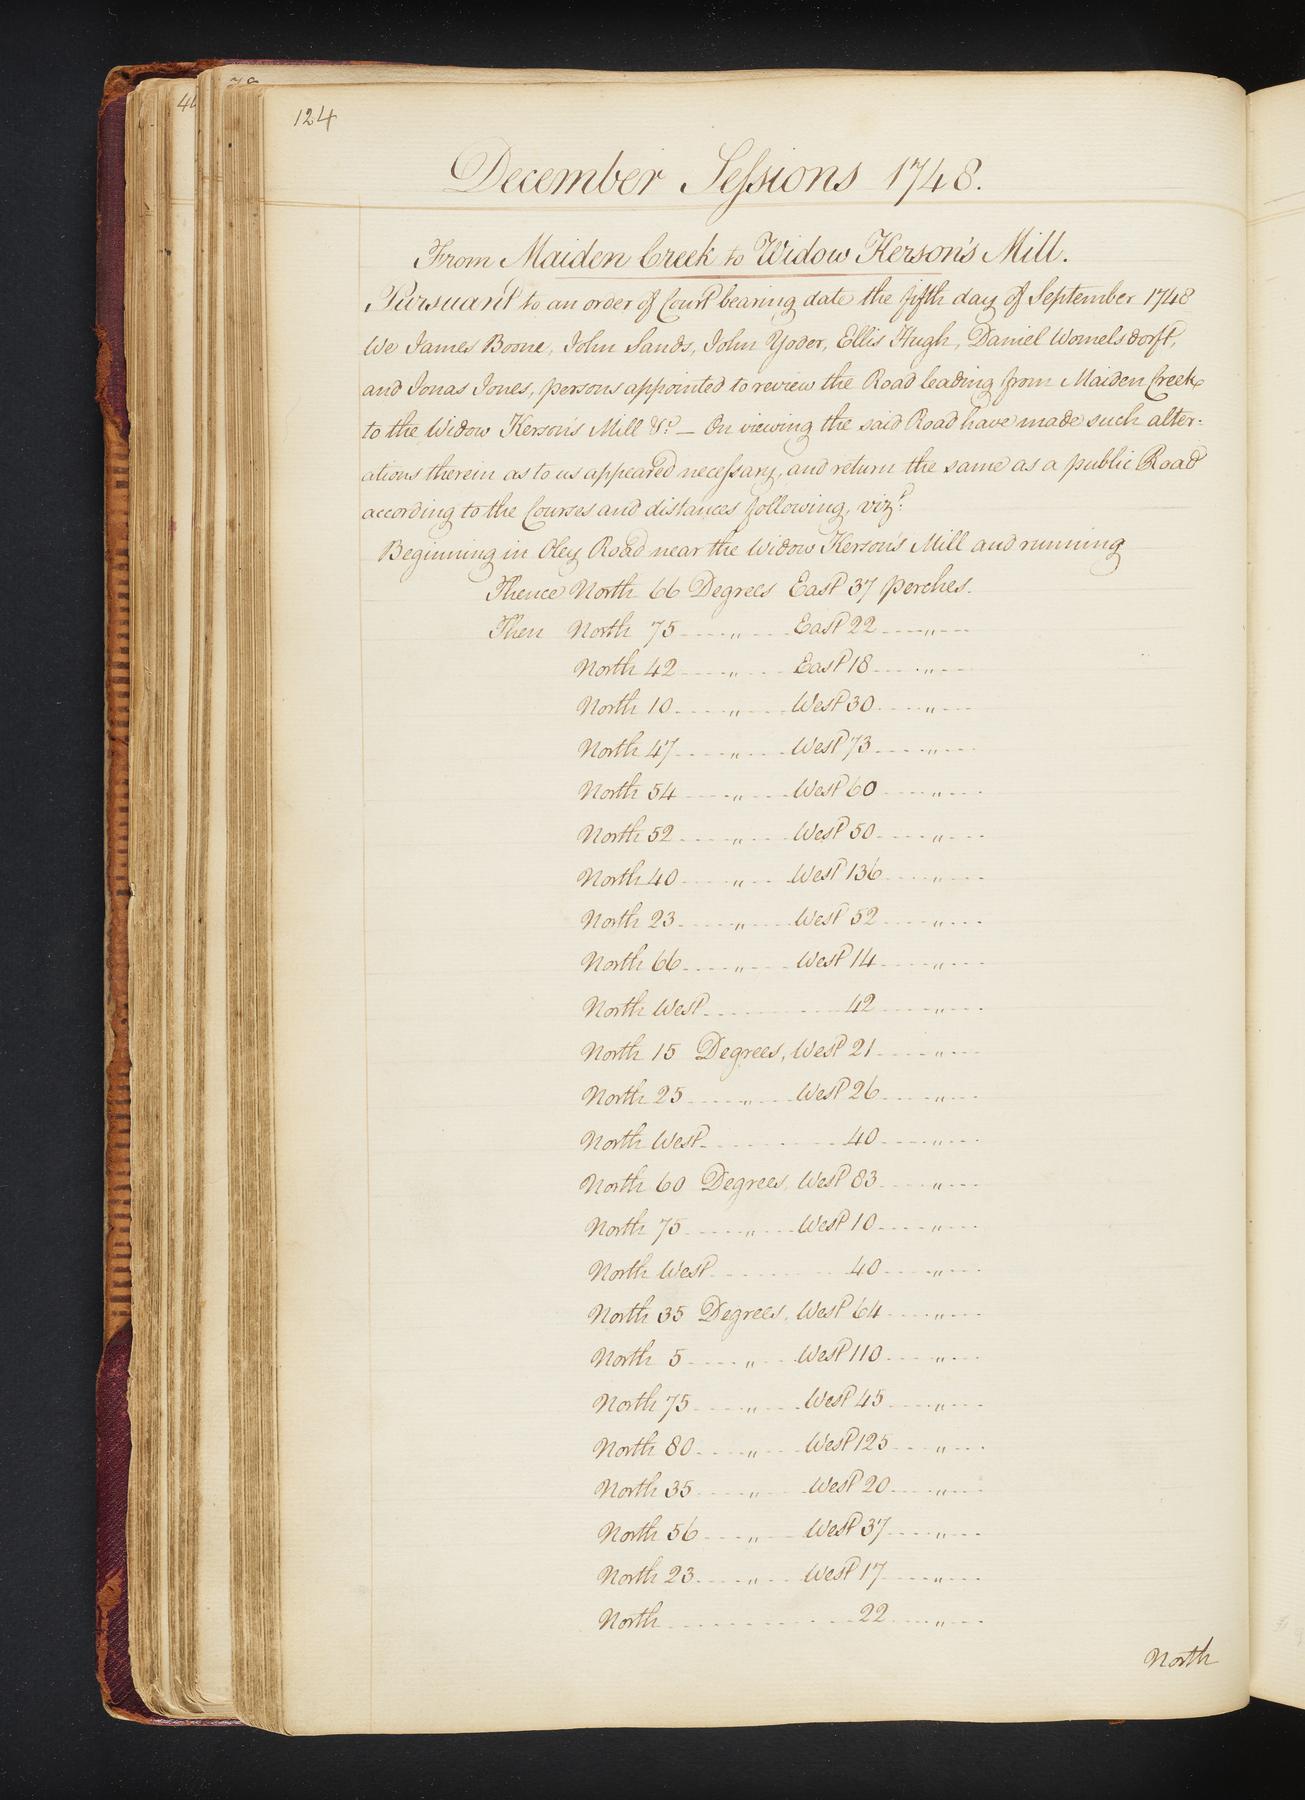 124
December Sessions 1748.
From Maiden Creek to Widow Kerson's Mill.
Pursuant to an order of Court bearing date the fifth day of September 1748
We James Boone, John Sands, John Yoder, Ellis Hugh, Daniel Womelsdorft,
and Jonas Jones, persons appointed to review the Road leading from Maiden Creek
to the Widow Kerson's Mill &c. — On viewing the said Road have made such alter:
ations therein as to us appeared necessary, and return the same as a public Road
according to the Courses and distances following, vizt.
Beginning in Oley Road near the Widow Kerson's Mill and running
Thence North 66 Degrees East 37 perches.
Then North 75 " East 22 "
North 42 " East 18 "
North 10 " West 30 "
North 47 " West 73 "
North 54 " West 60 "
North 52 " West 50 "
North 40 " West 136 "
North 23 " West 52 "
North 66 " West 14 "
North West 42 "
North 15 Degrees, West 21 "
North 25 " West 26 "
North West 40 "
North 60 Degrees, West 83 "
North 75 " West 10 "
North West 40 "
North 35 Degrees, West 64 "
North 5 " West 110 "
North 75 " West 45 "
North 80 " West 125 "
North 35 " West 20 "
North 56 " West 37 "
North 23 " West 17 "
North 22 "
North